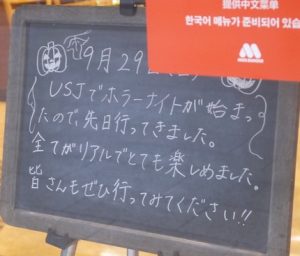 提供中文菜单
한국어 메뉴가 준비되어 있습
MOS BURGER
9月29日
USJでホラーナイトが始まっ
たので、先日行ってきました。
全てがリアルでとても楽しめました。
皆さんもぜひ行ってみてください!!